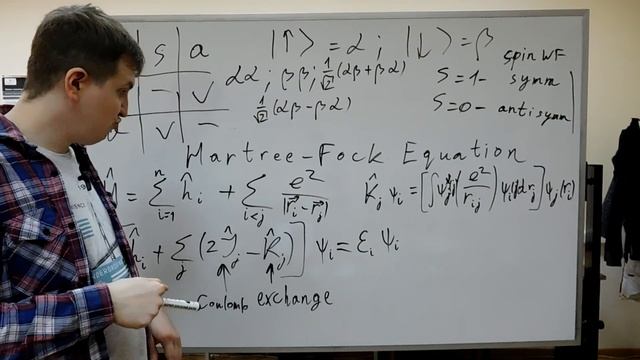 s | a
|↑⟩ = α ; |↓⟩ = β
αα ; ββ ; 1/√2 (αβ + βα)
1/√2 (αβ − βα)
spin WF
S=1 - symm
S=0 - antisymm
− | v
v | −
Hartree-Fock Equation
= Σ_{i=1}^{n} ĥ_i + Σ_{i<j} e²/|r⃗_i − r⃗_j|
K̂_j ψ_i = [∫ψ_j^*(e²/r_{ij}) ψ_i(j) dr_j] ψ_j(r_i)
ĥ_i + Σ_j (2Ĵ_j − K̂_j)] ψ_i = ε_i ψ_i
Coulomb exchange